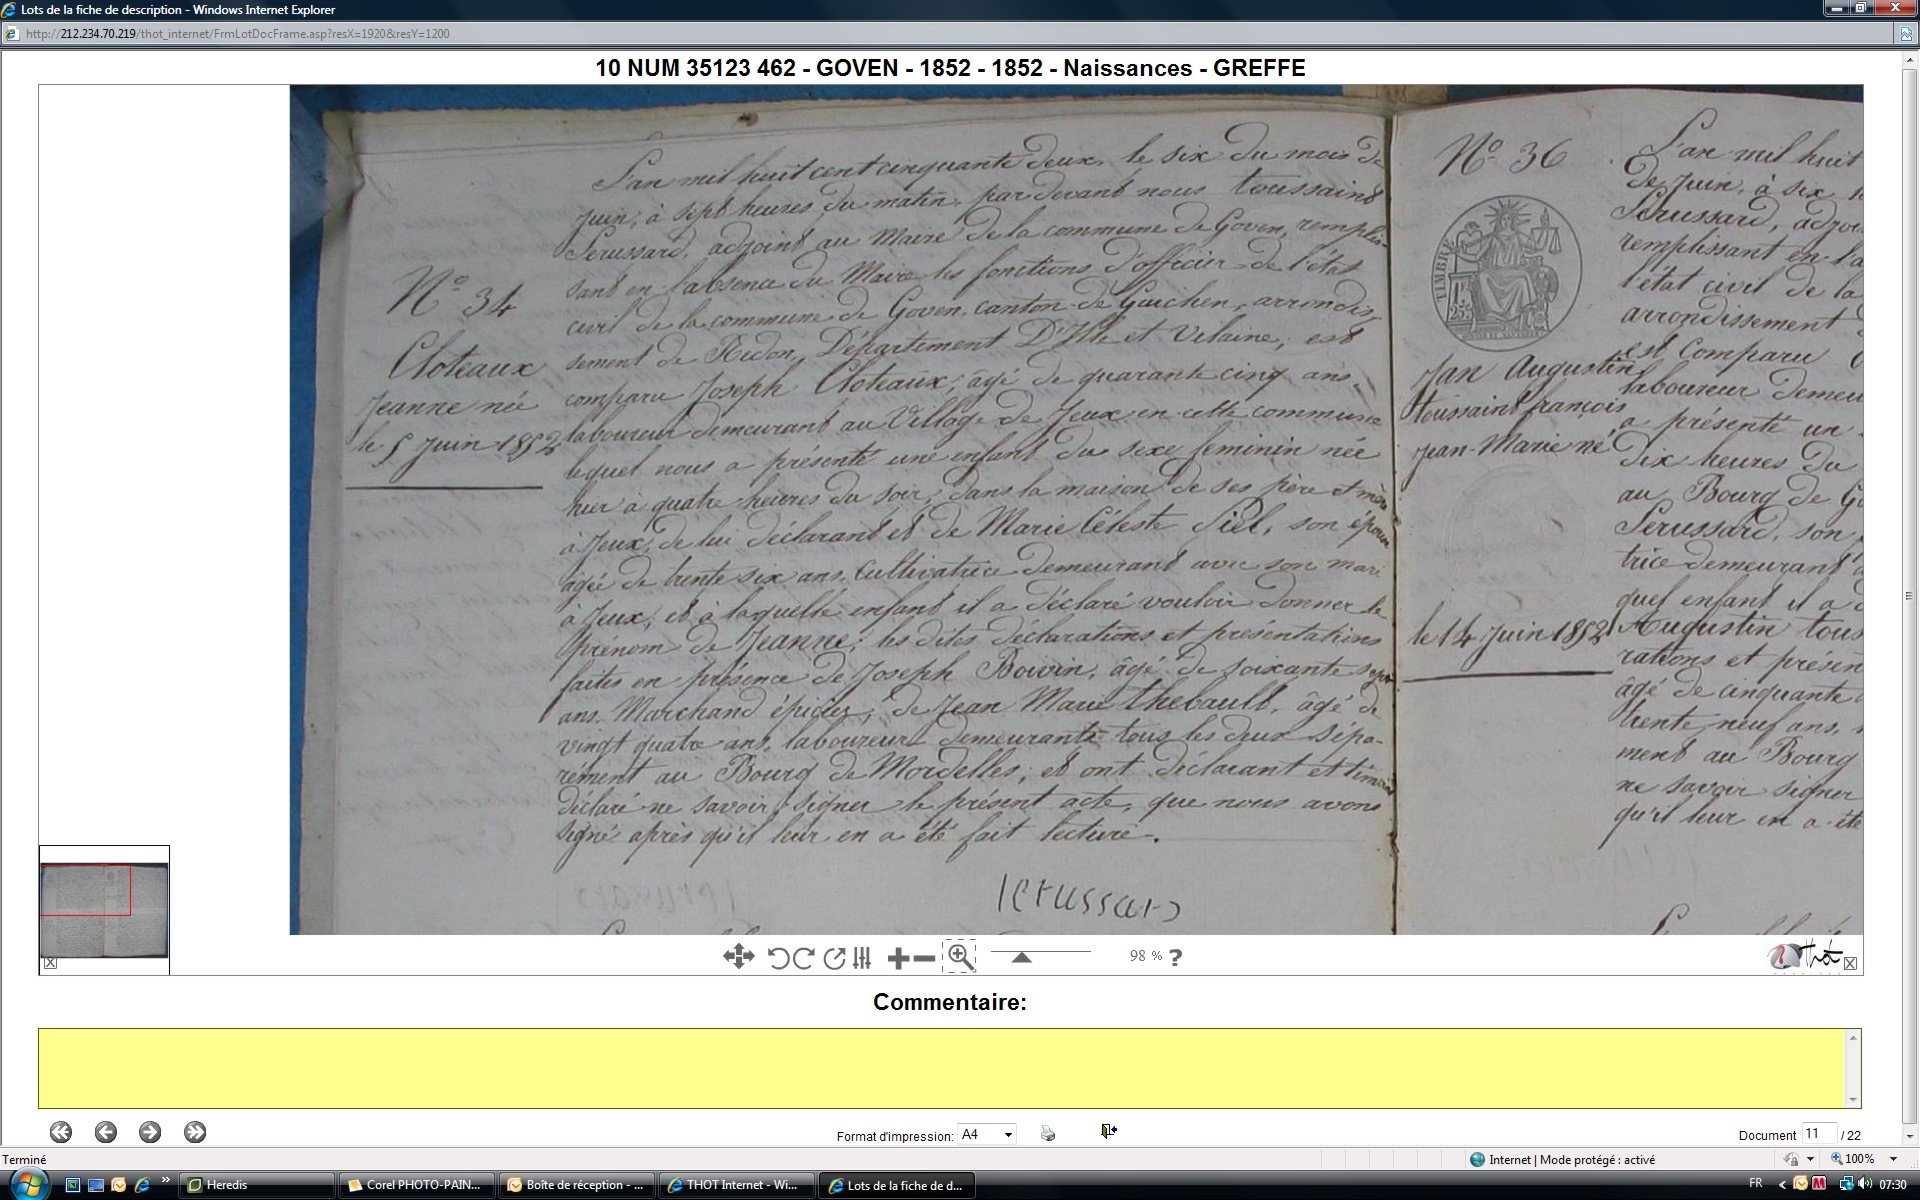 Lots de la fiche de description - Windows Internet Explorer
http://212.234.70.219/thot_internet/FrmLotDocFrame.asp?resX=1920&resY=1200
10 NUM 35123 462 - GOVEN - 1852 - 1852 - Naissances - GREFFE
N° 34
Cloteaux
Jeanne née
le 5 Juin 1852
L'an mil huit cent cinquante deux, le six du mois de
Juin, à sept heures du matin, par devant nous toussaint
Serussard, adjoint au Maire de la commune de Goven, remplis-
sant en l'absence du Maire les fonctions d'officier de l'état
civil de la commune de Goven, canton de Guichen, arrondis-
sement de Redon, Département D'Ille et Vilaine, est
comparu Joseph Cloteaux, âgé de quarante cinq ans,
laboureur demeurant au Village de Jeux en cette commune
lequel nous a présenté une enfant du sexe feminin née
hier à quatre heures du soir, dans la maison de ses père et mère
à Jeux, de lui déclarant et de Marie Céleste Siel, son épouse
agée de trente six ans, Cultivatrice demeurant avec son mari
à Jeux, et à laquelle enfant il a déclaré vouloir donner le
prénom de Jeanne; les dites déclarations et présentations
faites en présence de Joseph Bouvin, âgé de soixante sept
ans, Marchand épicier, de Jean Marie thebault, âgé de
vingt quatre ans, laboureur demeurants tous les deux sépa-
rément au Bourg de Mordelles, et ont déclarant et témoins
déclaré ne savoir signer le présent acte, que nous avons
signé après qu'il leur en a été fait lecture.
serussard
N° 36
TIMBRE
Jan Augustin
toussaint françois
Jean-Marie né
le 14 Juin 1852
L'an mil huit
de Juin, à six
Serussard, adjoi
remplissant en l'a
l'état civil de la
arrondissement
est Comparu
laboureur demeu
a présenté un
dix heures du
au Bourg de G
Serussard, son
trice demeurant
quel enfant il a
Augustin tous
rations et présen
âgé de cinquante
trente neuf ans,
ment au Bourg
ne savoir signer
qu'il leur en a été
98 % ?
Thot
Commentaire:
Format d'impression: A4
Document 11 / 22
Terminé
Internet | Mode protégé : activé
100%
Heredis
Corel PHOTO-PAIN...
Boîte de réception - ...
THOT Internet - Wi...
Lots de la fiche de d...
FR
07:30